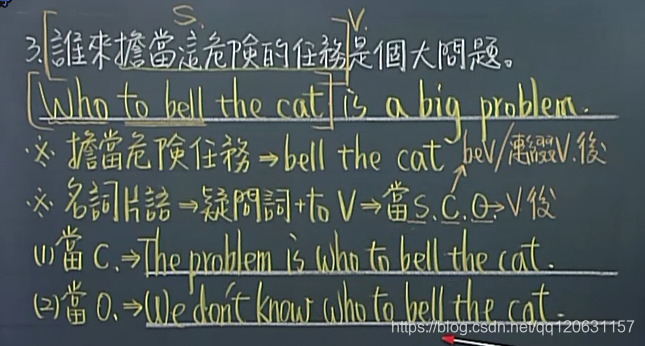 S. V.
3.[誰來擔當這危險的任務]是個大問題。
[Who to bell the cat] is a big problem.
※ 擔當危險任務⇒bell the cat beV/連綴V.後
※ 名詞片語⇒疑問詞+to V⇒當S.C.O.→V後
(1)當C.⇒The problem is who to bell the cat.
(2)當O.⇒We don't know who to bell the cat.
https://blog.csdn.net/qq120631157